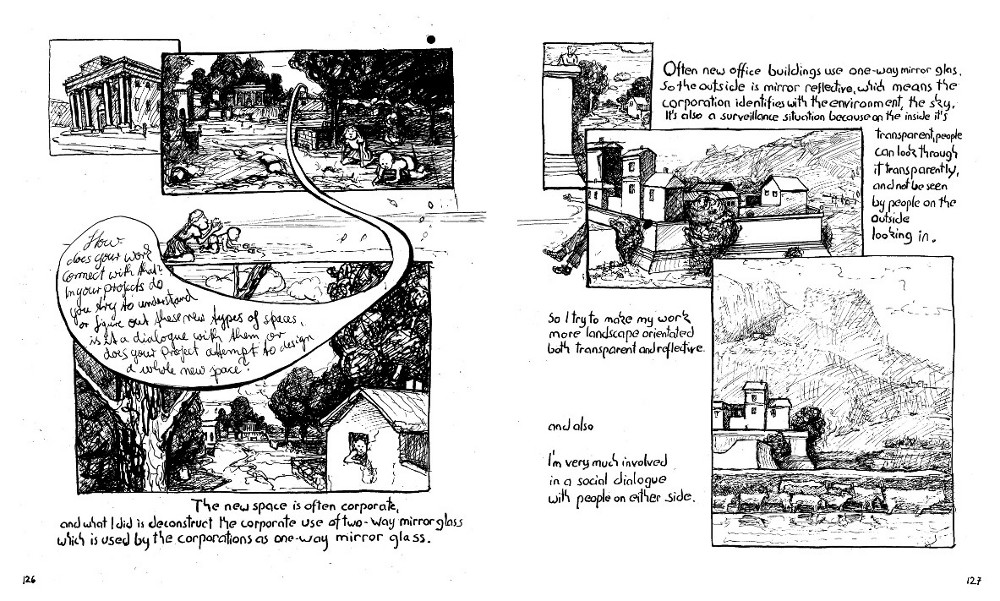 How
does your work
connect with that?
In your projects do
you try to understand
or figure out these new types of spaces,
is it a dialogue with them or
does your project attempt to design
a whole new space?
The new space is often corporate,
and what I did is deconstruct the corporate use of two-way mirror glass
which is used by the corporations as one-way mirror glass.
126
Often new office buildings use one-way mirror glas.
So the outside is mirror reflective, which means the
corporation identifies with the environment, the sky.
It's also a surveillance situation because on the inside it's
transparent, people
can look through
it transparently,
and not be seen
by people on the
outside
looking in.
So I try to make my work
more landscape orientated
both transparent and reflective.
and also
I'm very much involved
in a social dialogue
with people on either side.
127